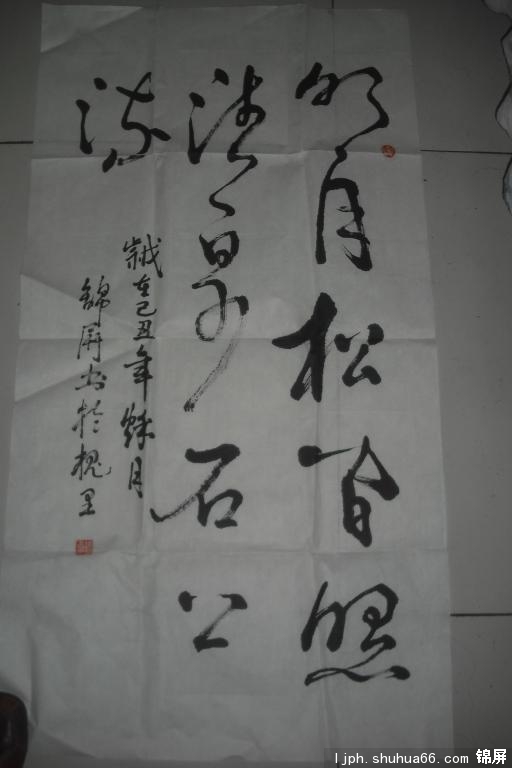 明月松间照
清泉石上
流
岁在己丑年秋月
锦屏书于槐里
ljph.shuhua66.com 锦屏